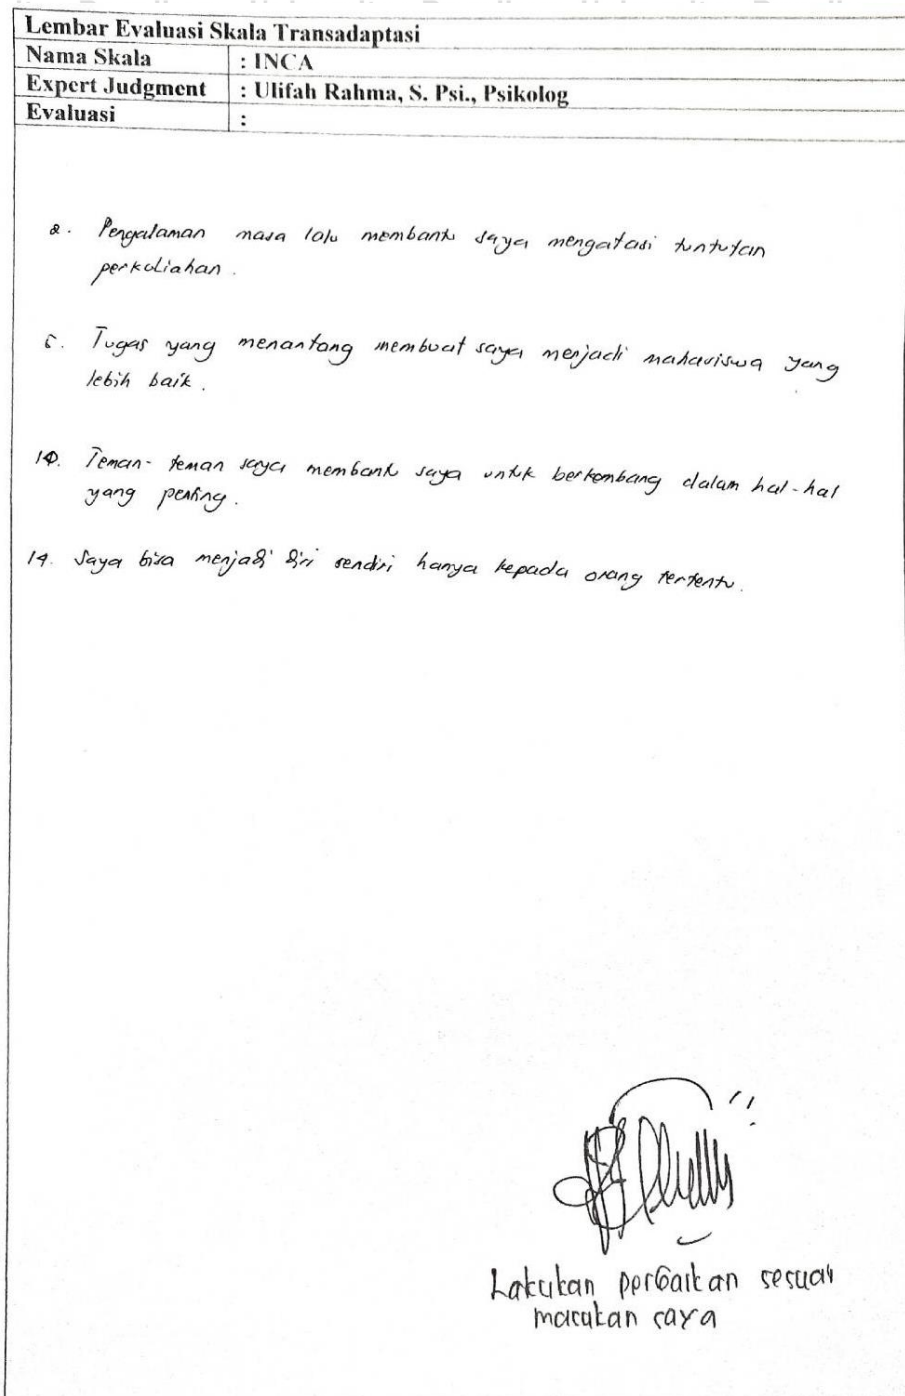 Lembar Evaluasi Skala Transadaptasi
Nama Skala : INCA
Expert Judgment : Ulifah Rahma, S. Psi., Psikolog
Evaluasi :
2. Pengalaman masa lalu membantu saya mengatasi tuntutan
perkuliahan.
5. Tugas yang menantang membuat saya menjadi mahasiswa yang
lebih baik.
10. Teman-teman saya membantu saya untuk berkembang dalam hal-hal
yang penting.
14. Saya bisa menjadi diri sendiri hanya kepada orang tertentu.
Lakukan perbaikan sesuai
masukan saya